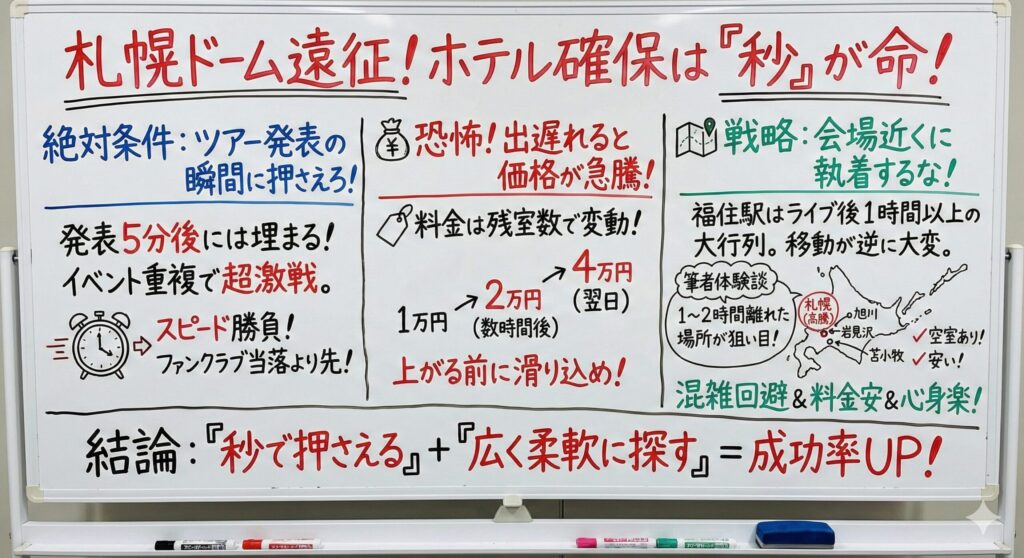 札幌ドーム遠征！ホテル確保は『秒』が命！
絶対条件：ツアー発表の
瞬間に押さえろ！
発表5分後には埋まる！
イベント重複で超激戦。
スピード勝負！
ファンクラブ当落より先！
¥
恐怖！出遅れると
価格が急騰！
料金は残室数で変動！
1万円
2万円
(数時間後)
4万円
(翌日)
上がる前に滑り込め！
戦略：会場近くに
執着するな！
福住駅はライブ後1時間以上の
大行列。移動が逆に大変。
筆者体験談
1〜2時間離れた
場所が狙い目！
札幌
(高騰)
旭川
岩見沢
苫小牧
✓空室あり！
✓安い！
混雑回避&料金安&心身楽！
結論：『秒で押さえる』+『広く柔軟に探す』=成功率UP！